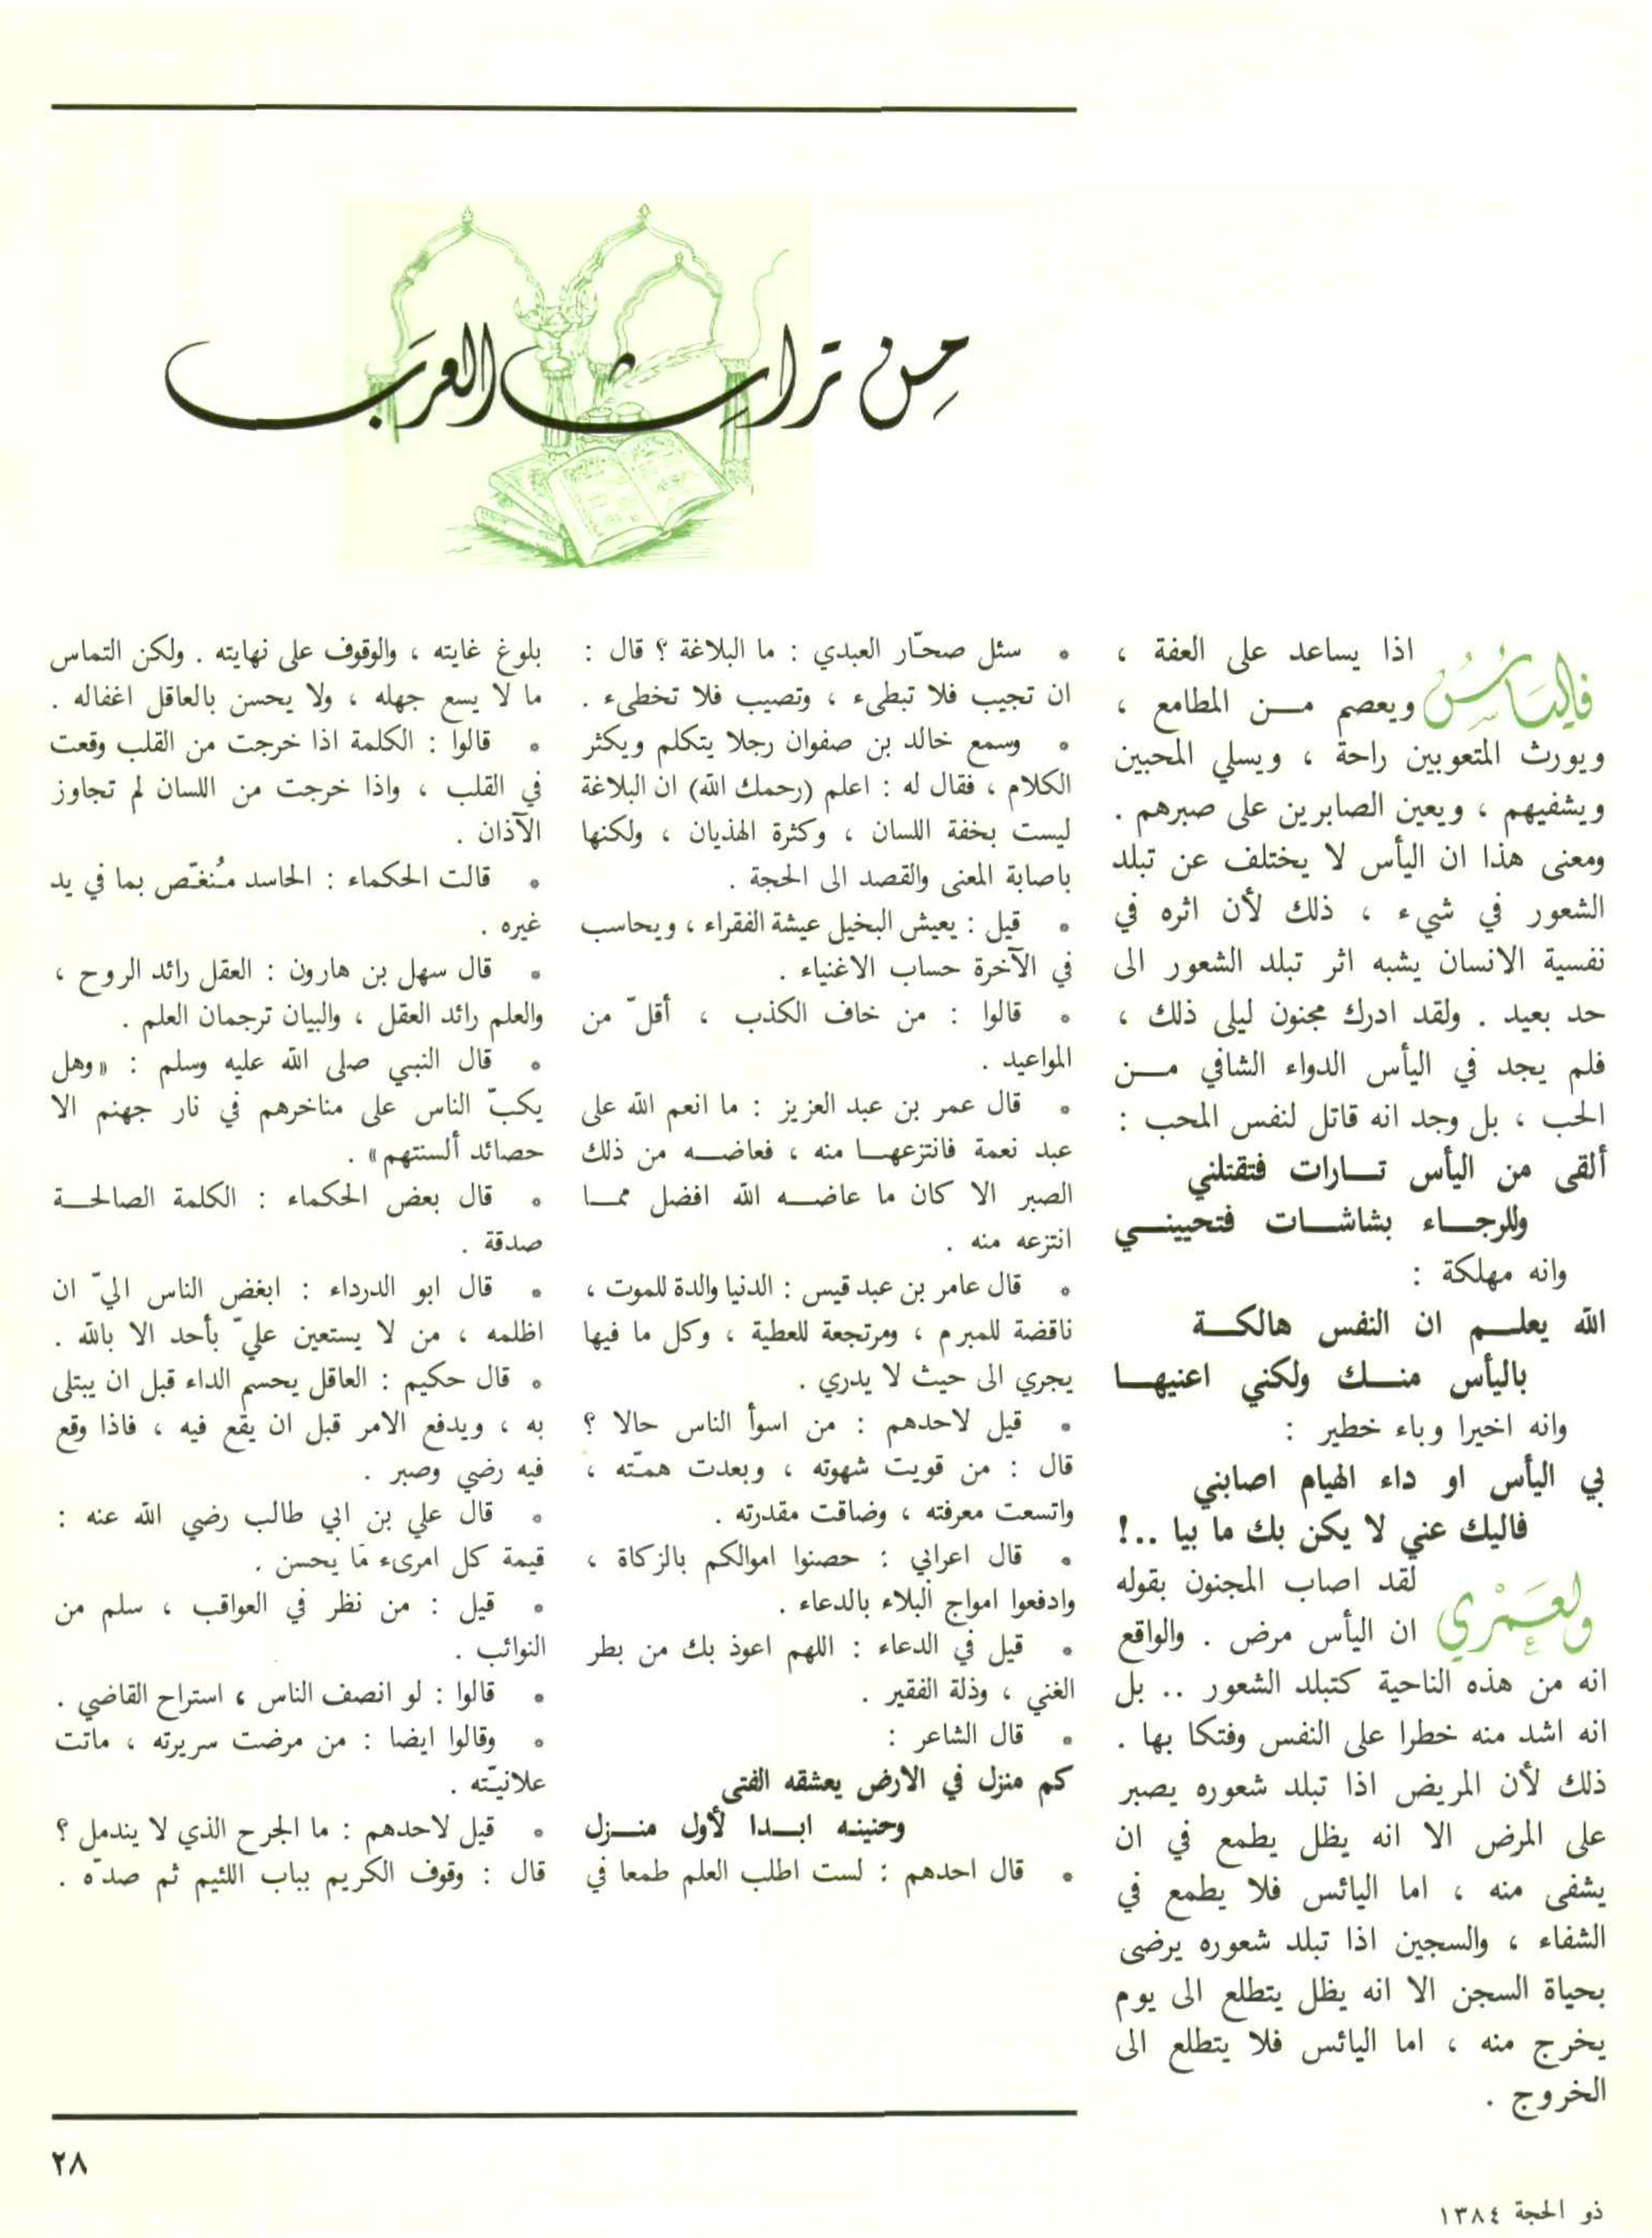 فاليأس اذا يساعد على العفة ،
ويعصم مـن المطامع ،
ويورث المتعوبين راحة ، ويسلي المحبين
ويشفيهم ، ويعين الصابرين على صبرهم .
ومعنى هذا ان اليأس لا يختلف عن تبلد
الشعور في شيء ، ذلك لأن اثره في
نفسية الانسان يشبه اثر تبلد الشعور الى
حد بعيد . ولقد ادرك مجنون ليلى ذلك ،
فلم يجد في اليأس الدواء الشافي مـن
الحب ، بل وجد انه قاتل لنفس المحب :
ألقى من اليأس تـارات فتقتلني
وللرجـاء بشاشـات فتحيينـي
وانه مهلكة :
الله يعلـم ان النفس هالكـة
باليأس منـك ولكني اعنيهـا
وانه اخيرا وباء خطير :
بي اليأس او داء الهيام اصابني
فاليك عني لا يكن بك ما بيا ..!
ولعمري لقد اصاب المجنون بقوله
ان اليأس مرض . والواقع
انه من هذه الناحية كتبلد الشعور .. بل
انه اشد منه خطرا على النفس وفتكا بها .
ذلك لأن المريض اذا تبلد شعوره يصبر
على المرض الا انه يظل يطمع في ان
يشفى منه ، اما اليائس فلا يطمع في
الشفاء ، والسجين اذا تبلد شعوره يرضى
بحياة السجن الا انه يظل يتطلع الى يوم
يخرج منه ، اما اليائس فلا يتطلع الى
الخروج .
مِن تراث العرَب
• سئل صحّار العبدي : ما البلاغة ؟ قال :
ان تجيب فلا تبطىء ، وتصيب فلا تخطىء .
• وسمع خالد بن صفوان رجلا يتكلم ويكثر
الكلام ، فقال له : اعلم (رحمك الله) ان البلاغة
ليست بخفة اللسان ، وكثرة الهذيان ، ولكنها
باصابة المعنى والقصد الى الحجة .
• قيل : يعيش البخيل عيشة الفقراء ، ويحاسب
في الآخرة حساب الاغنياء .
• قالوا : من خاف الكذب ، أقلّ من
المواعيد .
• قال عمر بن عبد العزيز : ما انعم الله على
عبد نعمة فانتزعهـا منه ، فعاضـه من ذلك
الصبر الا كان ما عاضـه الله افضل ممـا
انتزعه منه .
• قال عامر بن عبد قيس : الدنيا والدة للموت ،
ناقضة للمبرم ، ومرتجعة للعطية ، وكل ما فيها
يجري الى حيث لا يدري .
• قيل لاحدهم : من اسوأ الناس حالا ؟
قال : من قويت شهوته ، وبعدت همّته ،
واتسعت معرفته ، وضاقت مقدرته .
• قال اعرابي : حصنوا اموالكم بالزكاة ،
وادفعوا امواج البلاء بالدعاء .
• قيل في الدعاء : اللهم اعوذ بك من بطر
الغني ، وذلة الفقير .
• قال الشاعر :
كم منزل في الارض يعشقه الفتى
وحنينه ابـدا لأول منـزل
• قال احدهم : لست اطلب العلم طمعا في
بلوغ غايته ، والوقوف على نهايته . ولكن التماس
ما لا يسع جهله ، ولا يحسن بالعاقل اغفاله .
• قالوا : الكلمة اذا خرجت من القلب وقعت
في القلب ، واذا خرجت من اللسان لم تجاوز
الآذان .
• قالت الحكماء : الحاسد مُنغّص بما في يد
غيره .
• قال سهل بن هارون : العقل رائد الروح ،
والعلم رائد العقل ، والبيان ترجمان العلم .
• قال النبي صلى الله عليه وسلم : «وهل
يكبّ الناس على مناخرهم في نار جهنم الا
حصائد ألسنتهم» .
• قال بعض الحكماء : الكلمة الصالحـة
صدقة .
• قال ابو الدرداء : ابغض الناس اليّ ان
اظلمه ، من لا يستعين عليّ بأحد الا بالله .
• قال حكيم : العاقل يحسم الداء قبل ان يبتلى
به ، ويدفع الامر قبل ان يقع فيه ، فاذا وقع
فيه رضي وصبر .
• قال علي بن ابي طالب رضي الله عنه :
قيمة كل امرىء ما يحسن .
• قيل : من نظر في العواقب ، سلم من
النوائب .
• قالوا : لو انصف الناس ، استراح القاضي .
• وقالوا ايضا : من مرضت سريرته ، ماتت
علانيّته .
• قيل لاحدهم : ما الجرح الذي لا يندمل ؟
قال : وقوف الكريم بباب اللئيم ثم صدّه .
٢٨
ذو الحجة ١٣٨٤